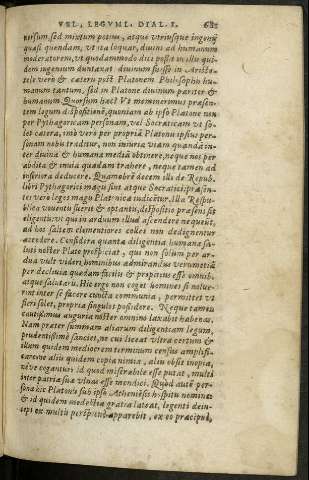 VEL, LEGVMI. DIAL. I. 682
uersum, sed mixtum potius, atque vtriusque ingenij
quasi quendam, vt ita loquar, diuini ad humanum
moderatorem, vt quodammodo dici possit in illis qui-
dem ingenium duntaxat diuinum fuisse in Aristo-
tele verò & cæteris post Platonem Philosophis hu-
manum tantum, sed in Platone diuinum pariter &
humanum. Quorsum hæc? Vt meminerimus præsen-
tem legum dispositionē, quoniam ab ipso Platone non
per Pythagoricam personam, vel Socraticam vt so-
let cætera, imò verò per propriã Platonis ipsius per-
sonam nobis traditur, non iniuria viam quandã in-
ter diuina & humana mediã obtinere, neque nos per
abdita & inuia quadam trahere, neque tamen ad
inferiora deducere. Quamobrē decem illi de Repub.
libri Pythagorici magis sint atque Socratici: præsen-
tes vero leges magis Platonicæ iudicētur. Illa Respu-
blica vouentis fuerit & optantis, dispositio præsens sit
eligentis: vt qui in arduum illud ascendere nequeūt,
ad hos saltem clementiores colles non dedignentur
accedere. Considera quanta diligentia humanæ sa-
luti noster Plato prospiciat, qui non solum per ar-
dua vult videri hominibus admirandus verumetiã
per decliuia quædam facilis & propitius esse omnib.
atque salutaris. Hic ergo non coget homines si nolue-
rint inter se facere cuncta communia, permittet vt
fieri solet, propria singulos possidere. Neque tamen
cautissimus auguria noster omnino laxabit habenas.
Nam præter summam aliarum diligentiam legum,
prudentissimè sanciet, ne cui liceat vltra certum &
illum quidem mediocrem terminum census amplifi-
care: ne alijs quidem copia nimia, alijs obsit inopia,
neve cogantur id quod miserabile esse putat, multi
inter patriæ suæ vinas esse mendici. Quòd autē per-
sona hic Platonis sub ipso Atheniēsis hospitis nomine
& id quidem modestiæ gratia lateat, legenti dein-
ceps ex multis perspicuè apparebit, ex eo præcipuè,